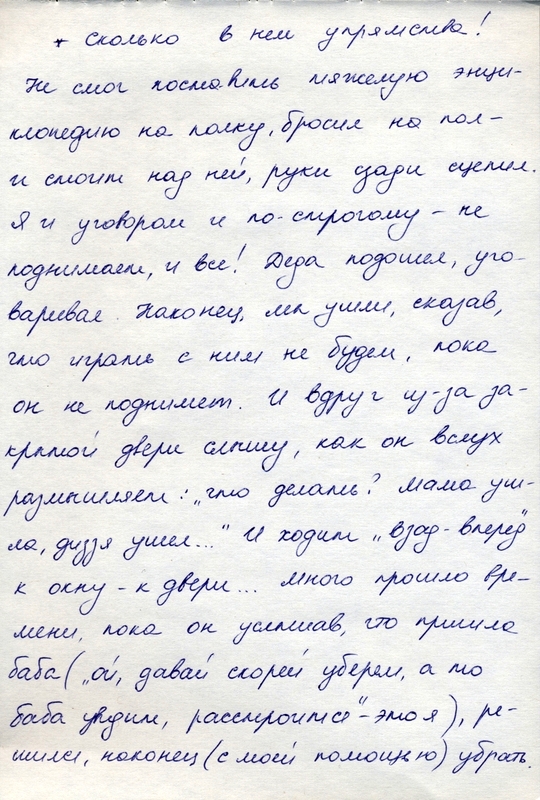 * сколько в нем упрямства!
Не смог поставить тяжелую энци-
клопедию на полку, бросил на пол-
и стоит над ней, руки сзади сцепил.
Я и уговором и по-строгому - не
поднимает, и все! Деда подошел, уго-
варивал. Наконец, мы ушли, сказав,
что играть с ним не будем, пока
он не поднимет. И вдруг из-за за-
крытой двери слышу, как он вслух
размышляет: „что делать? Мама уш-
ла, дидзя ушел..." И ходит „взад-вперед"
к окну - к двери... Много прошло вре-
мени, пока он услышав, что пришла
баба („ой, давай скорей уберем, а то
баба увидит, расстроится" - это я), ре-
шился, наконец (с моей помощью) убрать.